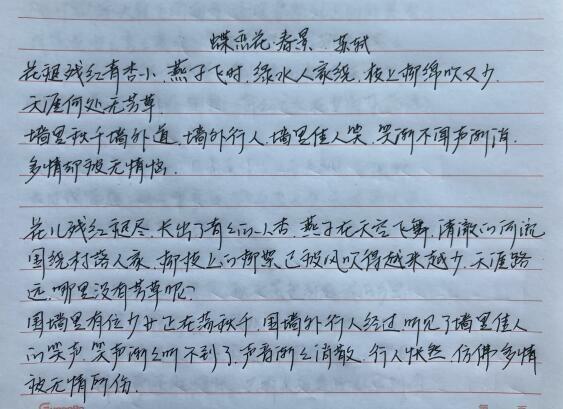 蝶恋花·春景 苏轼
花褪残红青杏小.燕子飞时,绿水人家绕,枝上柳绵吹又少.
天涯何处无芳草
墙里秋千墙外道.墙外行人.墙里佳人笑.笑渐不闻声渐消.
多情却被无情恼.
花儿残红褪尽.长出了青青的小杏.燕子在天空飞舞,清澈的河流
围绕村落人家.柳枝上的柳絮已被风吹得越来越少.天涯路
远.哪里没有芳草呢?
围墙里有位少女正在荡秋千,围墙外行人经过,听见了墙里佳人
的笑声.笑声渐渐听不到了,声音渐渐消散.行人怅然.仿佛多情
被无情所伤.